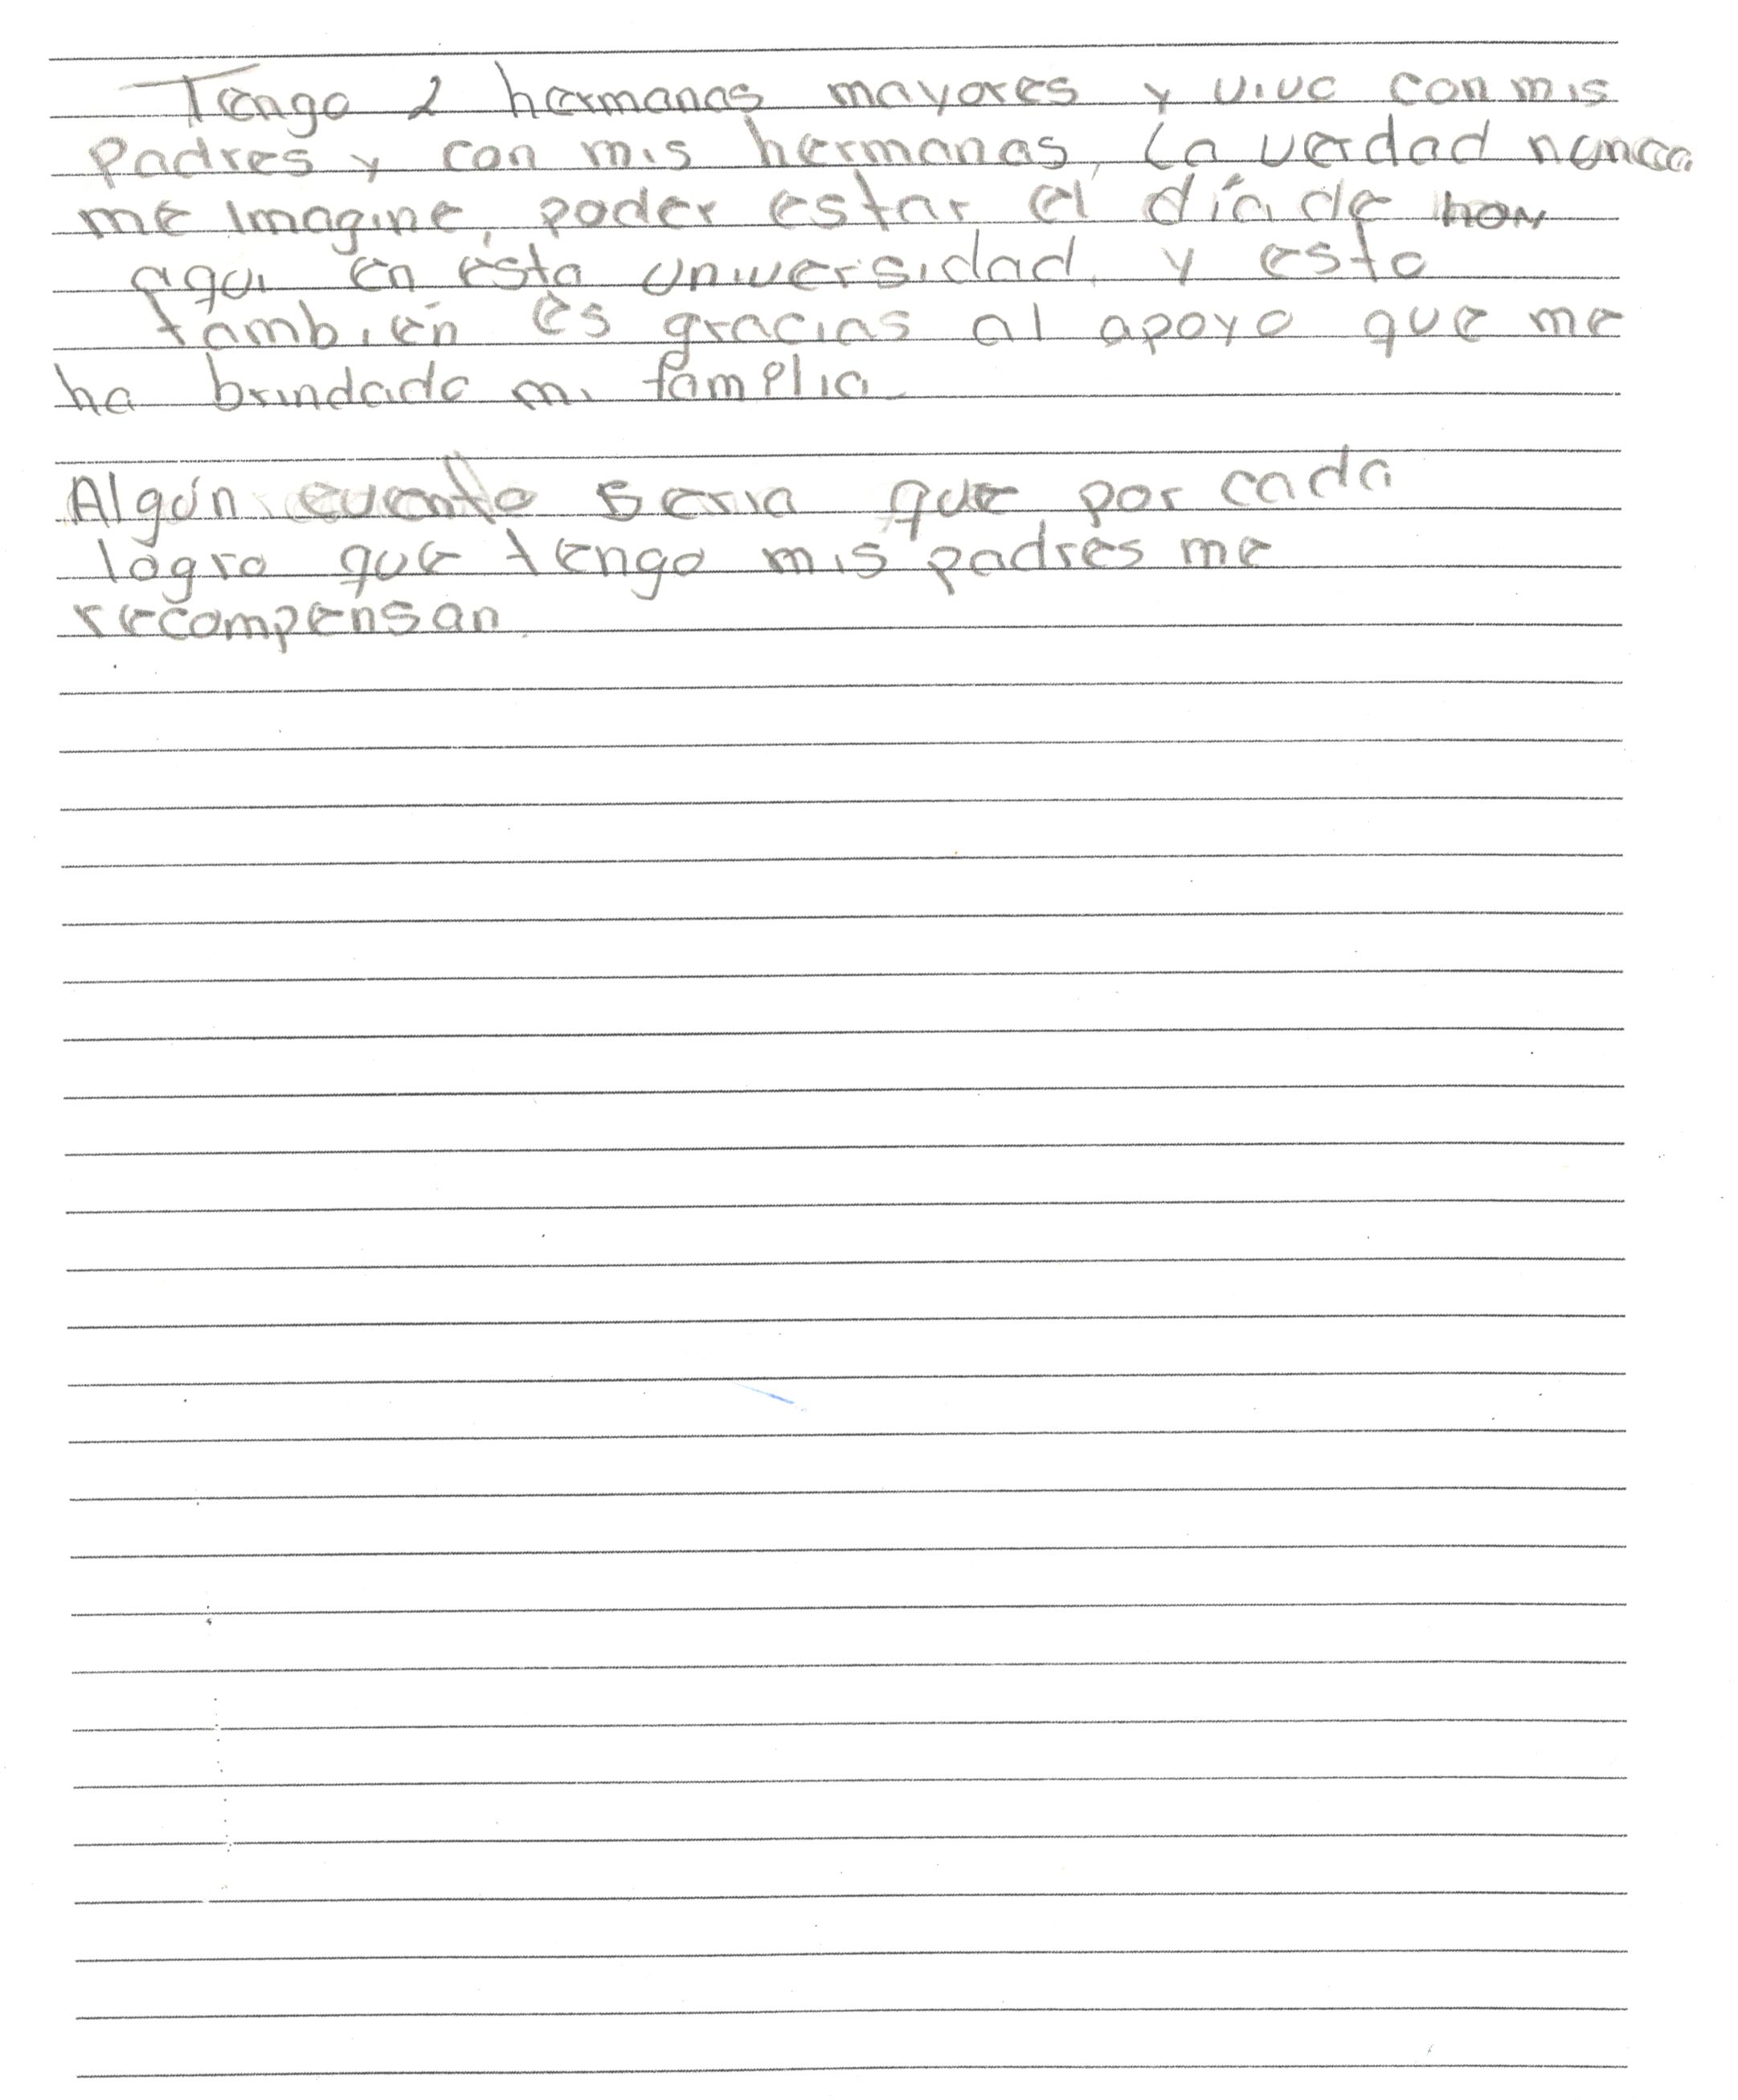 Tengo 2 hermanas mayores y vivo con mis
padres y con mis hermanas, La verdad nunca
me imagine, poder estar el día de hoy
aqui en ésta universidad, y esto
también es gracias al apoyo que me
ha brindado mi familia
Algún evento seria que por cada
logro que tengo mis padres me
recompensan.